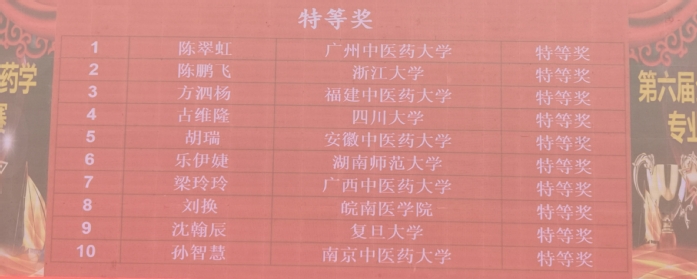 特等奖
1 陈翠虹 广州中医药大学 特等奖
2 陈鹏飞 浙江大学 特等奖
3 方泗杨 福建中医药大学 特等奖
4 古维隆 四川大学 特等奖
5 胡瑞 安徽中医药大学 特等奖
6 乐伊婕 湖南师范大学 特等奖
7 梁玲玲 广西中医药大学 特等奖
8 刘换 皖南医学院 特等奖
9 沈翰辰 复旦大学 特等奖
10 孙智慧 南京中医药大学 特等奖
药学
赛
第六届
专业